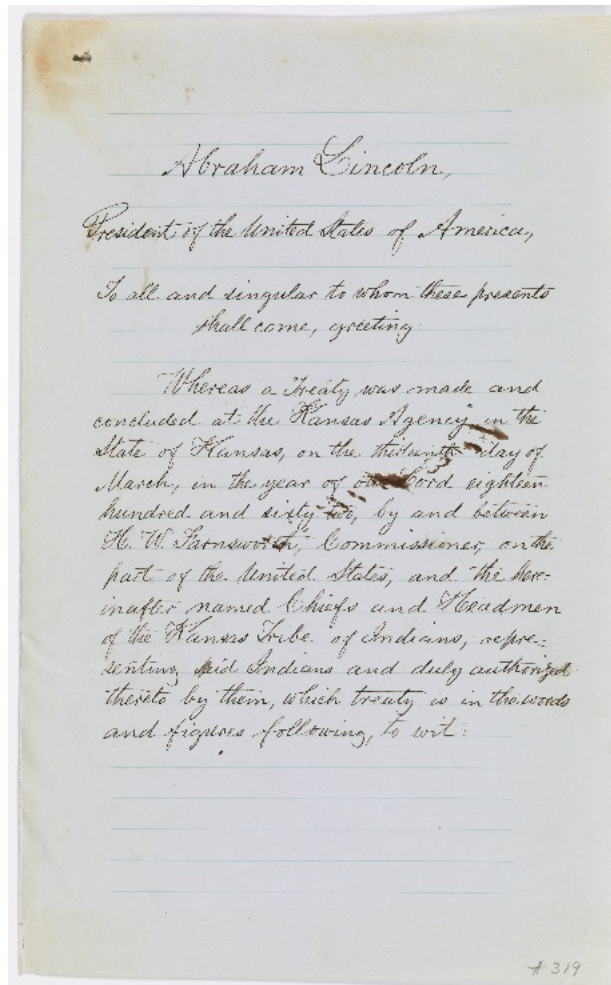 Abraham Lincoln,
President of the United States of America,
To all and singular to whom these presents
shall come, greeting:
Whereas a Treaty was made and
concluded at the Kansas Agency, in the
State of Kansas, on the thirteenth day of
March, in the year of our Lord eighteen
hundred and sixty two, by and between
H. W. Farnsworth, Commissioner, on the
part of the United States, and the here=
inafter named Chiefs and Headmen
of the Kansas Tribe of Indians, repre=
senting said Indians and duly authorized
thereto by them, which treaty is in the words
and figures following, to wit:
# 319